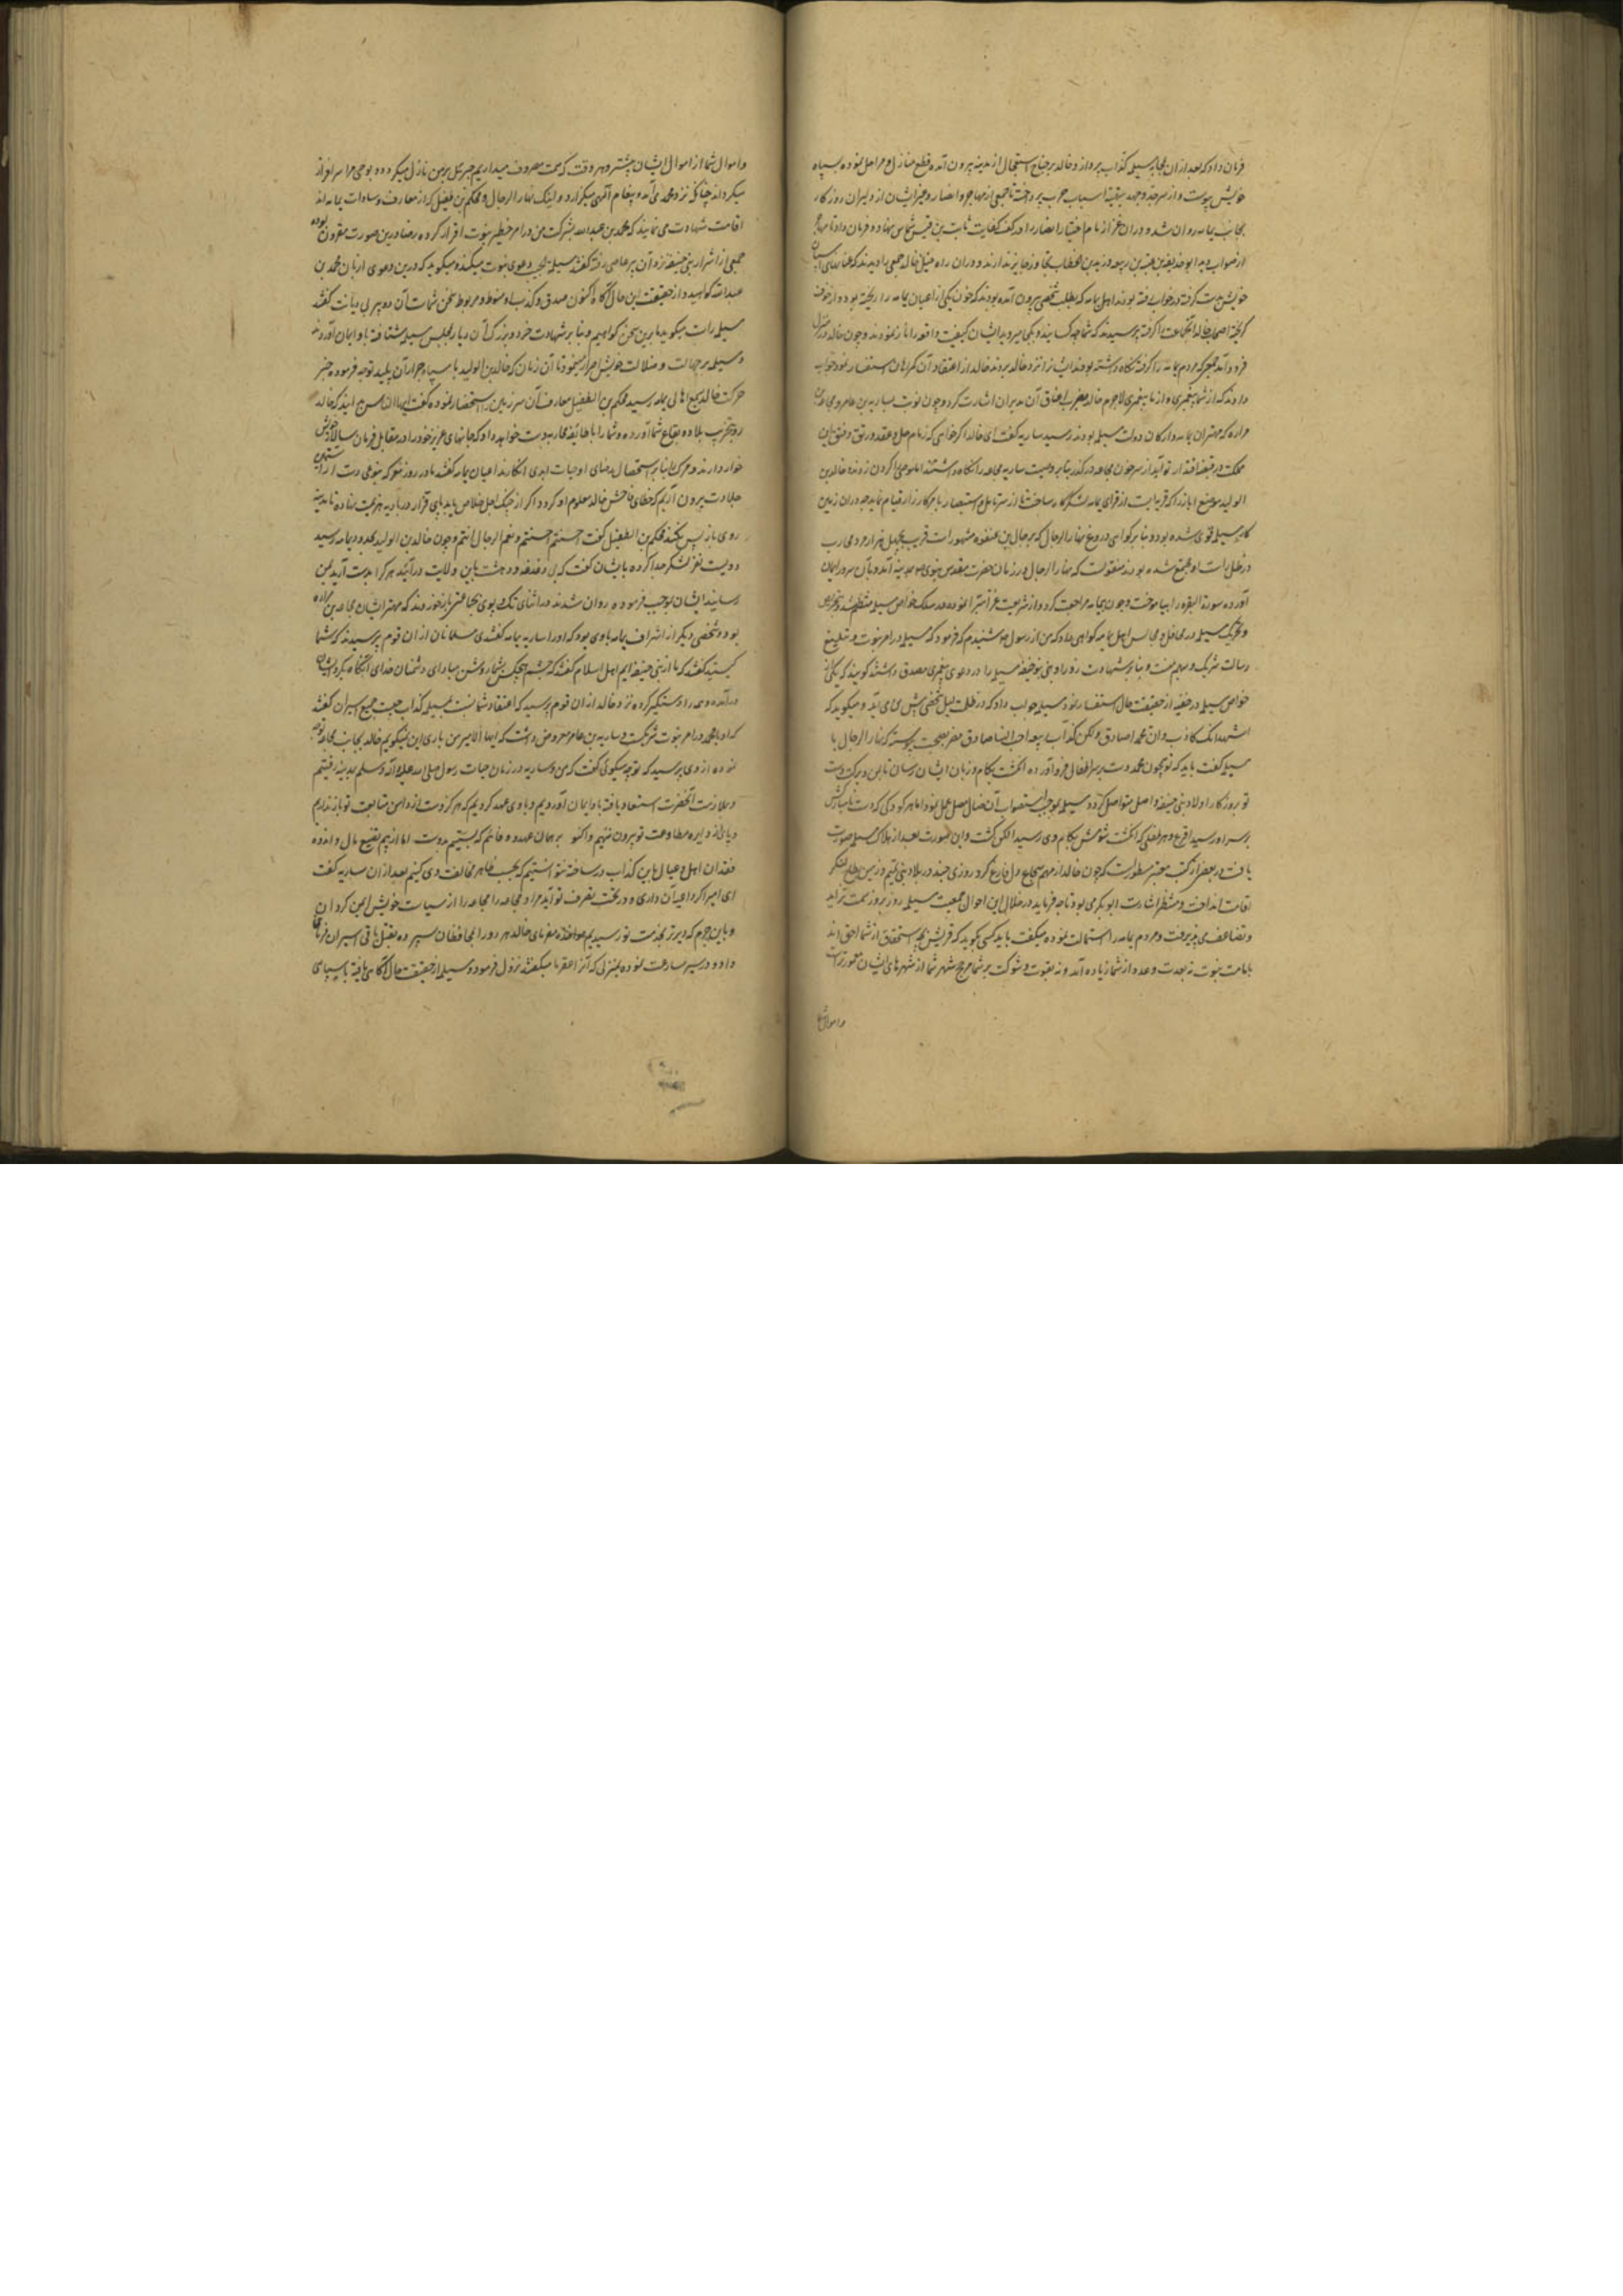 فرمان داد که بعد ازان بمحاربه مسیلمه کذاب پردازد و خالد بر جناح استعجال از مدینه بیرون آمده قطع منازل و مراحل نموده بسپاه
خویش پیوست و از سر جد و جهد بتهیه اسباب حرب پرداخته تا جمعی از مهاجر و انصار و غیر ایشان از دلیران روزکار
بجانب یمامه روان شد و دران زمام اختیار انصار را در کف کفایت ثابت بن قیس شماس نهاد و فرمان داد تا مهاجر
از صواب دید ابو حذیفه بن عتبه بن ربیعه و زید بن الخطاب تجاوز جایز ندارند و دران راه خیل خالد جمعی را دیدند که عنانهای اسپان
خویش بدست کرفته در خواب رفته بودند اهل یمامه که بطلب شخصی بیرون آمده بودند که خون یکی از اعیان یمامه را ریخته بود و از خوف
کریخته اصحاب خالد انجماعت را کرفته پرسیدند که شما چه کسانید و بکجا میروید ایشان کیفیت واقعه را باز نمودند و چون خالد در منزل
فرود آمد جمعی که مردم یمامه را کرفته نکاه داشته بودند ایشان را نزد خالد بردند خالد از اعتقاد آن کمراهان استفسار نمود جواب
دادند که از شما پیغمبری و از ما پیغمبری لاجرم خالد بضرب اعناق آن مدبران اشارت کرد و چون نوبت بساریه بن عامر و مجاعه بن
مراره که مهتران یمامه و ارکان دولت مسیلمه بودند رسید ساریه کفت ای خالد اکر خواهی که زمام حل و عقد و رتق و فتق این
مملکت در قبضه اقتدار تو آید از سر خون مجاعه درکذر بنابر وصیت ساریه مجاعه را نکاه داشتند اما سوی را کردن زدند و خالد بن
الولید موضع اباض را که قریه ایست از قرای یمامه لشکرکاه ساخت تا از سر تامل و استبصار بامر کارزار قیام نماید چه دران زمین
کار مسیلمه قوی شده بود و بنابر کواهی دروغ نهار الرجال که برجال بن عنفوه مشهورست قریب بچهل هزار مرد محارب
در ظل رایت او مجتمع شده بودند منقولست که نهار الرجال در زمان حضرت مقدس نبوی بمدینه آمد و بآن سرور ایمان
آورده سورة البقره را بیاموخت و چون بیمامه مراجعت کرد و از شریعت غرا تبرا نموده در سلک خواص مسیلمه منتظم شد و بتحریص
و تحریک مسیلمه در محافل و مجالس اهل یمامه کواهی داد که من از رسول شنیدم که فرمود که مسیلمه در امر نبوت و تبلیغ
رسالت شریک و سهیم منست و بنابر شهادت زور او بنو حنیفه مسیلمه را در دعوی پیغمبری مصدق داشتند کویند که یکی از
خواص مسیلمه در خفیه از حقیقت حال استفسار نمود مسیلمه جواب داد که در ظلمت لیل شخصی پیش من می آید و میکوید که
اشهد انک کاذب و ان محمدا صادق و لکن کذاب ربیعه احب الینا من صادق مضر بصحت پیوسته که نهار الرجال با
مسیلمه کفت باید که تو همچون محمد دست بر سر اطفال فرود آورده انکشت بکام و زبان ایشان رسانی تا یمن و برکت دست
تو بروزکار اولاد بنی حنیفه واصل و متواصل کردد مسیلمه بموجب استصواب آن ضال مضل عمل نمود اما هر کودکی که دست نامبارکش
بر سر او رسید اقرع و هر طفلی که انکشت شومش بکام وی رسید الکن کشت و این صورت بعد از هلاک مسیلمه صورت
یافت در بعضی از کتب معتبر مسطورست که چون خالد از مهم سجاح دل فارغ کرد روزی چند در بلاد بنی تمیم و زمین بطاح لنکر
اقامت انداخت و منتظر اشارت ابو بکر می بود تا چه فرماید در خلال این احوال جمعیت مسیلمه روز بروز سمت تزاید
و تضاعف می پذیرفت و مردم یمامه را استمالت نموده میکفت باید کسی بکوید که قریش بچه استحقاق از شما احق اند
بامامت نبوت نه بعدت و عدد از شما زیاده آند و نه بقوت و شوکت بر شما مرجح شهر شما از شهرهای ایشان معمورتر است
و اموال شما
و اموال شما از اموال ایشان بیشتر و هر وقت که همت مصروف میداریم جبرئیل بر من نازل میکردد و بوحی مرا سرافراز
میکرداند چنانکه نزد محمد می آمد و پیغام آلهی میکزارد و اینک نهار الرجال و محکم بن طفیل که از معارف و سادات یمامه اند
اقامت شهادت می نمایند که محمد بن عبدالله بشرکت من در امر خطیر نبوت اقرار کرده رضا درین صورت مقرون بوده
جمعی از اشرار بنی حنیفه نزد آن پیر عاصی رفته کفتند مسیلمه دعوی نبوت میکند و میکوید که درین دعوی از زبان محمد بن
عبدالله کواهید و از حقیقت این حال آکاه اکنون صدق و کذب او منوط و مربوط بسخن شماست آن دو پیر بی دیانت کفتند
مسیلمه راست میکوید ما برین سخن کواهیم و بنابر شهادت خرد و بزرک آن دیار بمجلس مسیلمه شتافته باو ایمان آوردند
و مسیلمه بر جهالت و ضلالت خویش اصرار مینمود تا آن زمان که خالد بن الولید با سپاه جرار آن پلید توجه فرموده خبر
حرکت خالد بسمع اهالی یمامه رسید محکم بن الطفیل معارف آن سرزمین را استحضار نموده کفت ایها الناس بدانید که خالد
رو بتخریب بلاد و بقاع شما آورده و شما را با طایفه محاربه دست خواهد داد که جانهای عزیز خود را در مقابل فرمان سالار خویش
خوار دارند و مرک را بنابر استحصال رضای او حیات ابدی انکارند اعیان یمامه کفتند ما در روز نبرد بنوعی دست از آستین
جلادت بیرون آریم که خطای فاحش خالد معلوم او کردد و اکر از چنک اجل خلاص یابد پای قرار در بادیه هزیمت نهاده تا مدینه
روی باز پس نکند محکم بن الطفیل کفت احسنتم احسنتم و نعم الرجال انتم و چون خالد بن الولید بحدود یمامه رسید
دویست نفر از لشکر جدا کرده بایشان کفت که بی دغدغه و دهشت باین ولایت درآیند هر کرا بدست آرید بمن
رسانید ایشان بموجب فرموده روان شدند در اثنای تک و پوی بجماعتی بازخوردند که مهتر ایشان مجاعه بن مراره
بود و شخصی دیکر از اشراف یمامه باوی بود که او را ساریه یمامه کفتندی مسلمانان ازان قوم پرسیدند که شما
کیستید کفتند که ما از بنی حنیفه ایم اهل اسلام کفتند که چشم هیچکس بشما روشن مباد ای دشمنان خدای آنکاه بکرد ایشان
درآمده و همه را دستکیر کرده نزد خالد ازان قوم پرسید که اعتقاد شما نسبت بمسیلمه کذاب چیست جمیع اسیران کفتند
که او با محمد در امر نبوت شریکست و ساریه بن عامر معروض داشت که ایها الامیر من باری این نمیکویم خالد بجانب مجاعه توجه
نموده از وی پرسید که تو چه میکوئی کفت که من و ساریه در زمان حیات رسول صلی الله علیه و آله و سلم بمدینه رفتیم
و بملازمت آنحضرت استسعاد یافته باو ایمان آوردیم و باوی عهد کردیم که هرکز دست از دامن متابعت تو باز نداریم
و پای از دایره مطاوعت تو بیرون ننهیم و اکنون بر همان عهد و وفائیم که بستیم بدوست اما از بیم تضییع مال و اندوه
فقدان اهل و عیال با این کذاب در ساخته نتوانستیم که بحسب ظاهر مخالفت وی کنیم بعد ازان ساریه کفت
ای امیر اکر داعیه آن داری و در تحت تصرف تو آید مرا و مجاعه را مجاعه را از سیاست خویش ایمن کردان
و باین جرم که دیر تر بخدمت تو رسیدیم مواخذه مفرمای خالد هر دو را بمحافظان سپرده بقتل باقی اسیران فرمان
داد و در مسیر مسارعت نموده بمنزلی که آنرا عقربا میکفتند نزول فرمود و مسیلمه از حقیقت حال آکاهی یافته با سپاهی